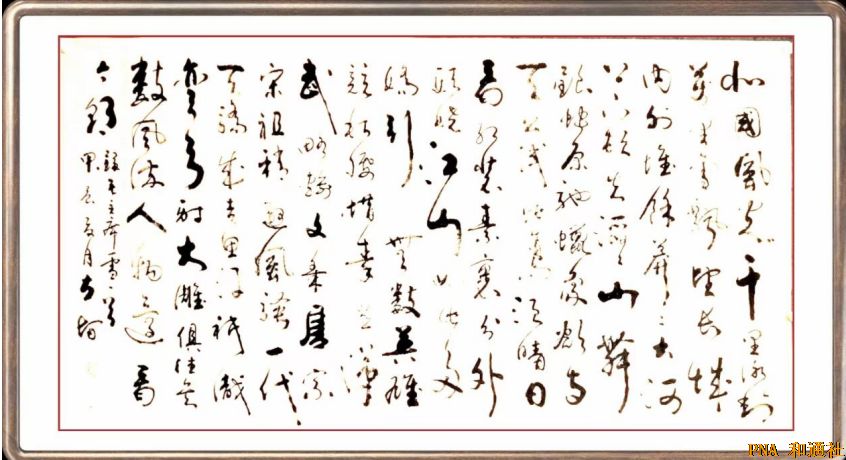 北國風光千里冰封
萬里雪飄望長城
内外惟餘莽莽大河
上下頓失滔滔山舞
銀蛇原馳蠟象欲與
天公試比高須晴日
看紅裝素裹分外
妖嬈江山如此多
嬌引無數英雄
競折腰惜秦皇漢
武略輸文采唐宗
宋祖稍遜風騷一代
天驕成吉思汗祇識
彎弓射大雕俱往矣
數風流人物還看
今朝 錄毛主席雪一首
甲辰夏月
PNA 和通社